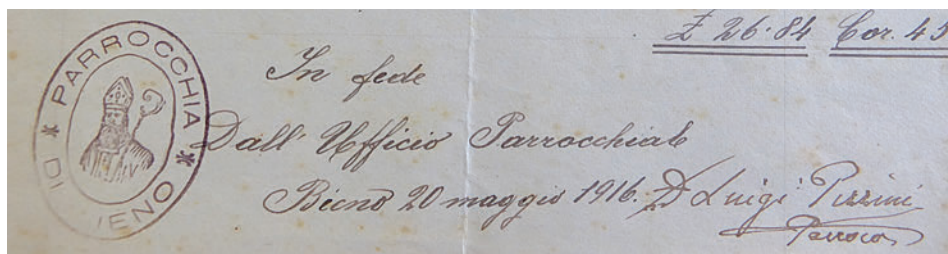 £ 26·84 Cor. 45
PARROCCHIA
DI BIENO
In fede
Dall' Ufficio Parrocchiale
Bieno 20 maggio 1916. D Luigi Pizzini
Parroco